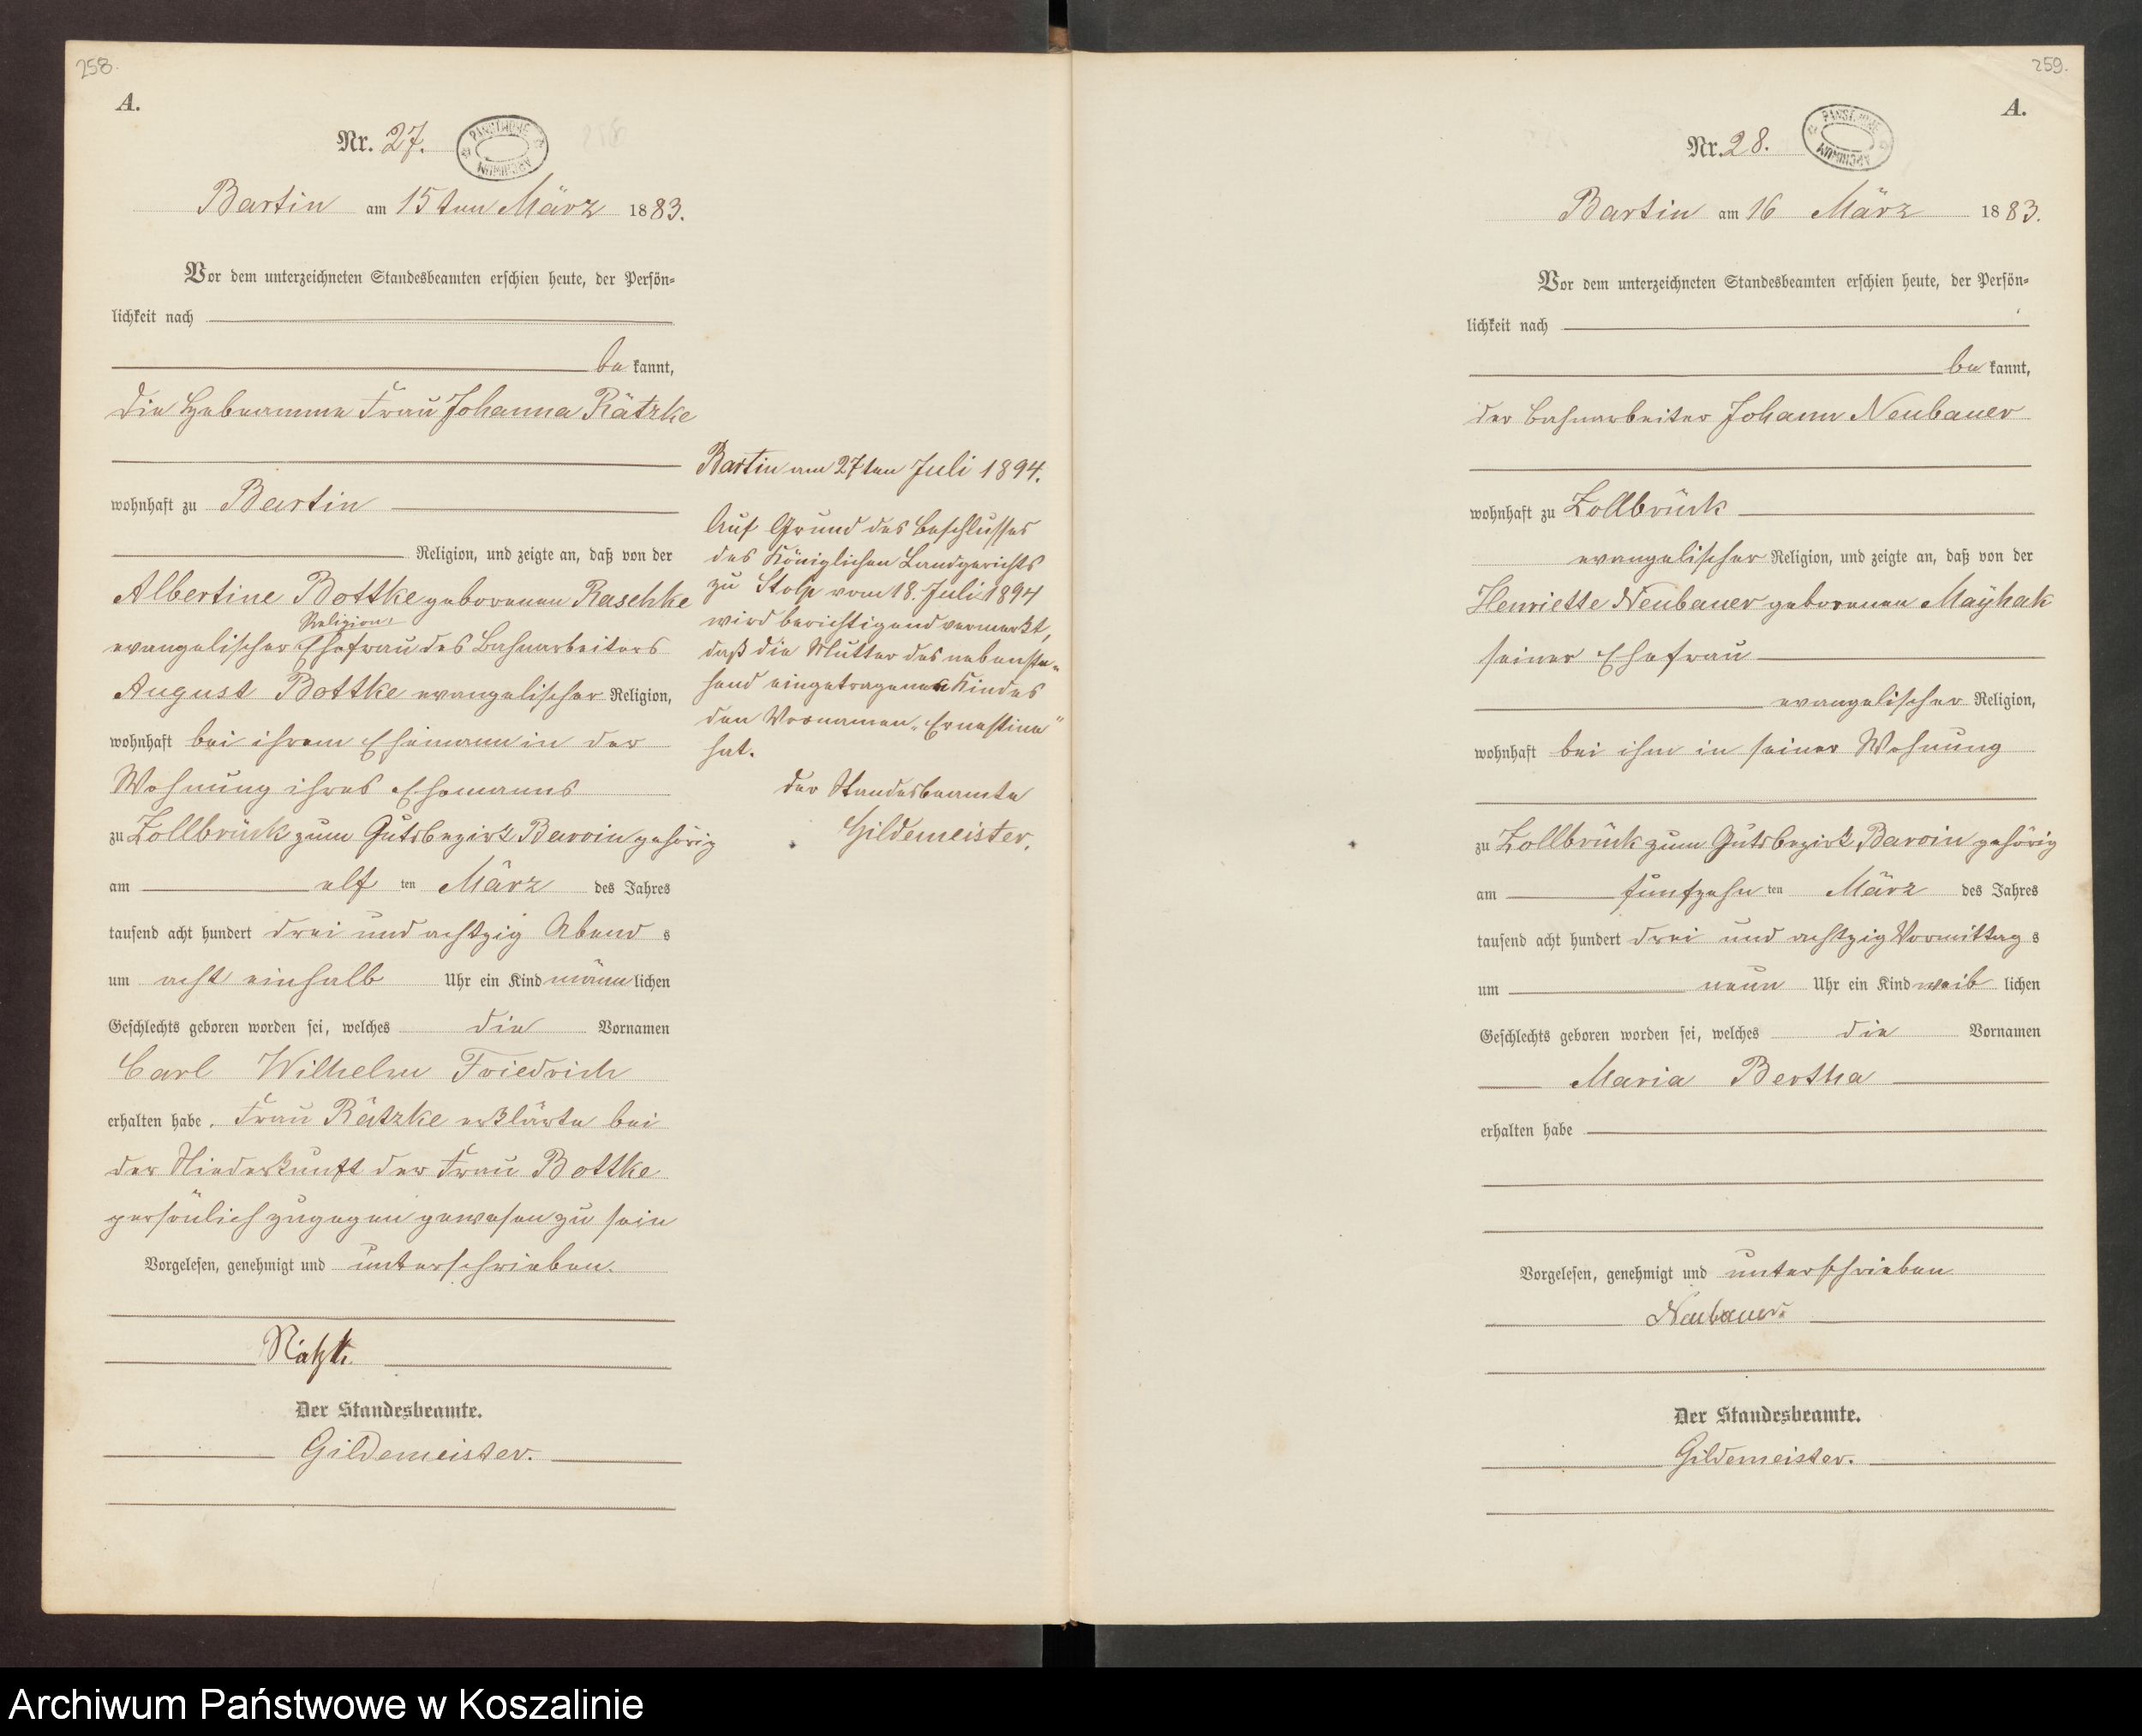 258.
A.
Nr. 27.
PAŃSTWOWE ARCHIWUM
Bartin am 15ten März 1883.
Vor dem unterzeichneten Standesbeamten erschien heute, der Persön=
lichkeit nach
be kannt,
die Hebeamme Frau Johanna Rätzke
wohnhaft zu Bartin
Religion, und zeigte an, daß von der
Albertine Bottke geborenen Raschke
Religion,
evangelischer Ehefrau des Bahnarbeiters
August Bottke evangelischer Religion,
wohnhaft bei ihrem Ehemann in der
Wohnung ihres Ehemanns
zu Zollbrück zum Gutsbezirk Barvin gehörig
am elf ten März des Jahres
tausend acht hundert drei und achtzig Abend s
um acht einhalb Uhr ein Kind männ lichen
Geschlechts geboren worden sei, welches die Vornamen
Carl Wilhelm Friedrich
erhalten habe. Frau Rätzke erklärte bei
der Niederkunft der Frau Bottke
persönlich zugegen gewesen zu sein
Vorgelesen, genehmigt und unterschrieben.
Rätzke
Der Standesbeamte.
Gildemeister.
Bartin am 27ten Juli 1894.
Auf Grund des Beschlusses
des Königlichen Landgerichts
zu Stolp vom 18. Juli 1894
wird berichtigend vermerkt,
daß die Mutter des nebenste=
hend eingetragenen Kindes
den Vornamen „Ernestine"
hat.
Der Standesbeamte
Gildemeister.
259.
A.
Nr. 28.
PAŃSTWOWE ARCHIWUM
Bartin am 16 März 1883.
Vor dem unterzeichneten Standesbeamten erschien heute, der Persön=
lichkeit nach
be kannt,
der Bahnarbeiter Johann Neubauer
wohnhaft zu Zollbrück
evangelischer Religion, und zeigte an, daß von der
Henriette Neubauer geborenen Mayhak
seiner Ehefrau
evangelischer Religion,
wohnhaft bei ihm in seiner Wohnung
zu Zollbrück zum Gutsbezirk Barvin gehörig
am fünfzehn ten März des Jahres
tausend acht hundert drei und achtzig Vormittag s
um neun Uhr ein Kind weib lichen
Geschlechts geboren worden sei, welches die Vornamen
Maria Bertha
erhalten habe
Vorgelesen, genehmigt und unterschrieben
Neubauer.
Der Standesbeamte.
Gildemeister.
Archiwum Państwowe w Koszalinie